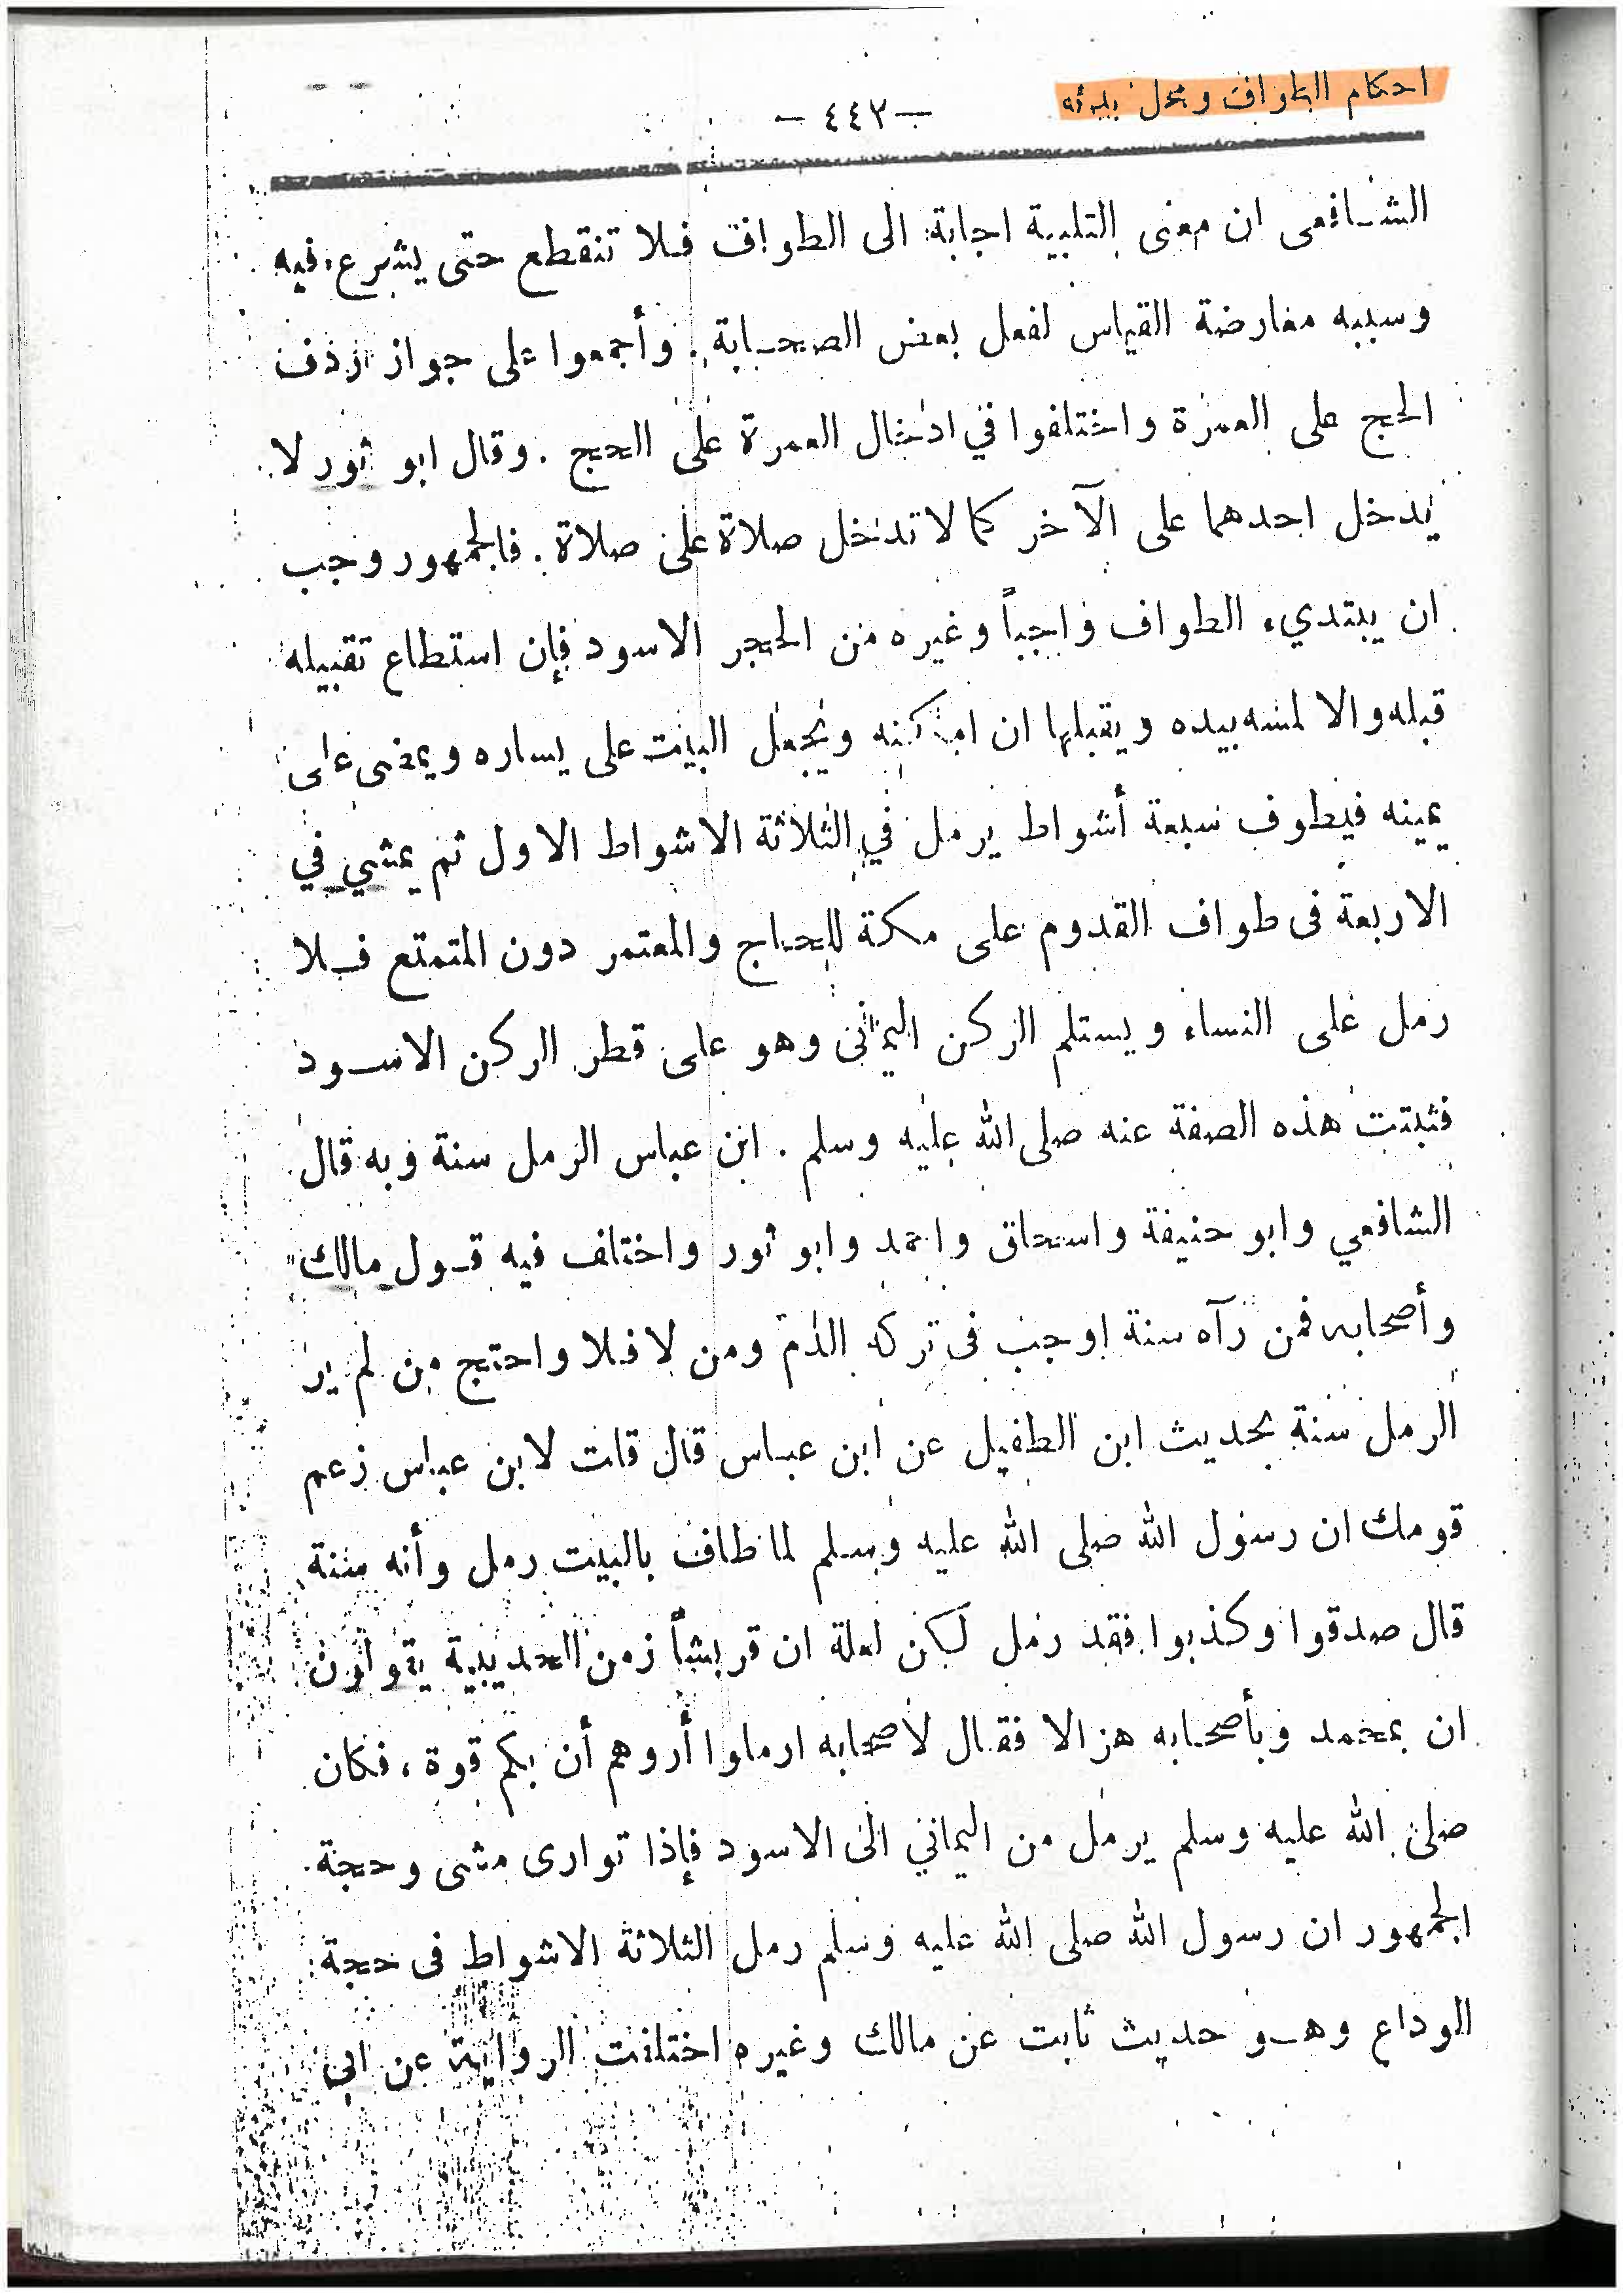 احكام الطواف ومحل بدئه
— ٤٤٢ —
الشافعى ان معنى التلبية اجابة الى الطواف فلا تنقطع حتى يشرع فيه
وسببه معارضة القياس لفعل بعض الصحابة . وأجمعوا على جواز ردف
الحج على العمرة واختلفوا في ادخال العمرة على الحج . وقال ابو ثور لا
يدخل احدهما على الآخر كما لا تدخل صلاة على صلاة . فالجمهور وجب
ان يبتديء الطواف واجباً وغيره من الحجر الاسود فإن استطاع تقبيله
قبله والا لمسه بيده ويقبلها ان امكنه ويجعل البيت على يساره ويمضى على
يمينه فيطوف سبعة أشواط يرمل في الثلاثة الاشواط الاول ثم يمشي في
الاربعة فى طواف القدوم على مكة للحاج والمعتمر دون المتمتع فلا
رمل على النساء ويستلم الركن اليمانى وهو على قطر الركن الاسود
فثبتت هذه الصفة عنه صلى الله عليه وسلم . ابن عباس الرمل سنة وبه قال
الشافعي وابو حنيفة واسحاق واحمد وابو ثور واختلف فيه قول مالك
وأصحابه فمن رآه سنة اوجب فى تركه الدم ومن لا فلا واحتج من لم ير
الرمل سنة بحديث ابن الطفيل عن ابن عباس قال قلت لابن عباس زعم
قومك ان رسول الله صلى الله عليه وسلم لما طاف بالبيت رمل وأنه سنة
قال صدقوا وكذبوا فقد رمل لكن لعلة ان قريشاً زمن الحديبية يقولون
ان بمحمد وبأصحابه هزالا فقال لأصحابه ارملوا أروهم أن بكم قوة ، فكان
صلى الله عليه وسلم يرمل من اليماني الى الاسود فإذا توارى مشى وحجة
الجمهور ان رسول الله صلى الله عليه وسلم رمل الثلاثة الاشواط فى حجة
الوداع وهو حديث ثابت عن مالك وغيره اختلفت الرواية عن ابي